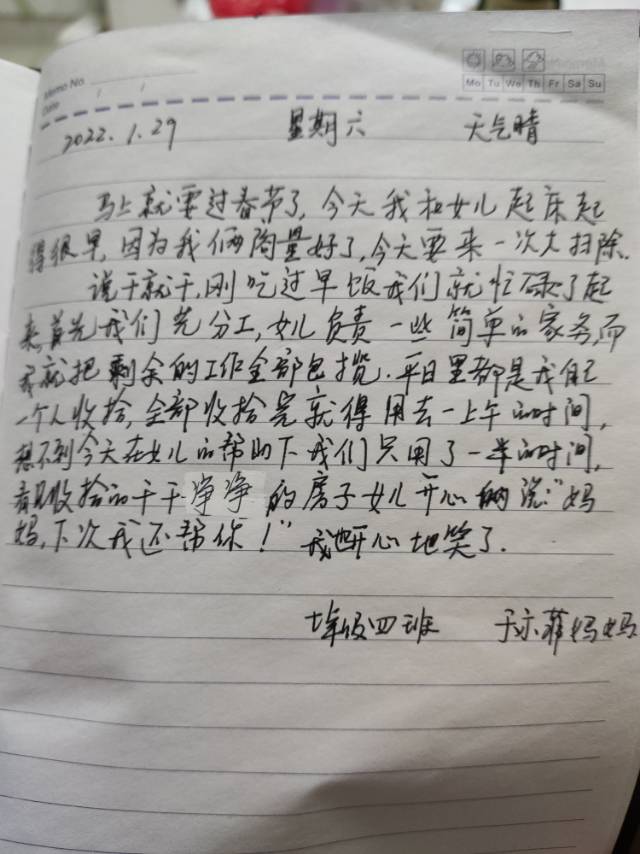 Memo No.
Date / /
Mo Tu We Th Fr Sa Su
2022.1.29 星期六 天气晴
马上就要过春节了,今天我和女儿起床起
得很早,因为我俩商量好了,今天要来一次大扫除.
说干就干,刚吃过早饭我们就忙碌了起
来,首先我们先分工,女儿负责一些简单的家务,而
我就把剩余的工作全部包揽.平日里都是我自己
一个人收拾,全部收拾完就得用去一上午的时间,
想不到今天在女儿的帮助下我们只用了一半的时间,
看见收拾的干干净净的房子女儿开心的说:"妈
妈,下次我还帮你!"我也开心地笑了.
年级四班 于亦菲妈妈